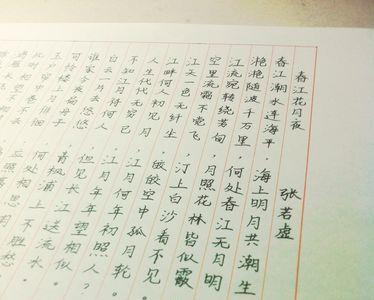 春江花月夜
张若虚
春江潮水连海平，海上明月共潮生
滟滟随波千万里，何处春江无月明
江流宛转绕芳甸，月照花林皆似霰
空里流霜不觉飞，汀上白沙看不见
江天一色无纤尘，皎皎空中孤月轮。
江畔何人初见月，江月何年初照人？
人生代代无穷已，江月年年望相似
不知江月待何人，但见长江送流水。
白云一片去悠悠，青枫浦上不胜愁
谁家今夜扁舟子，何处相思
可怜楼上月徘徊，应照
玉户帘中卷不去
此时相望不相闻